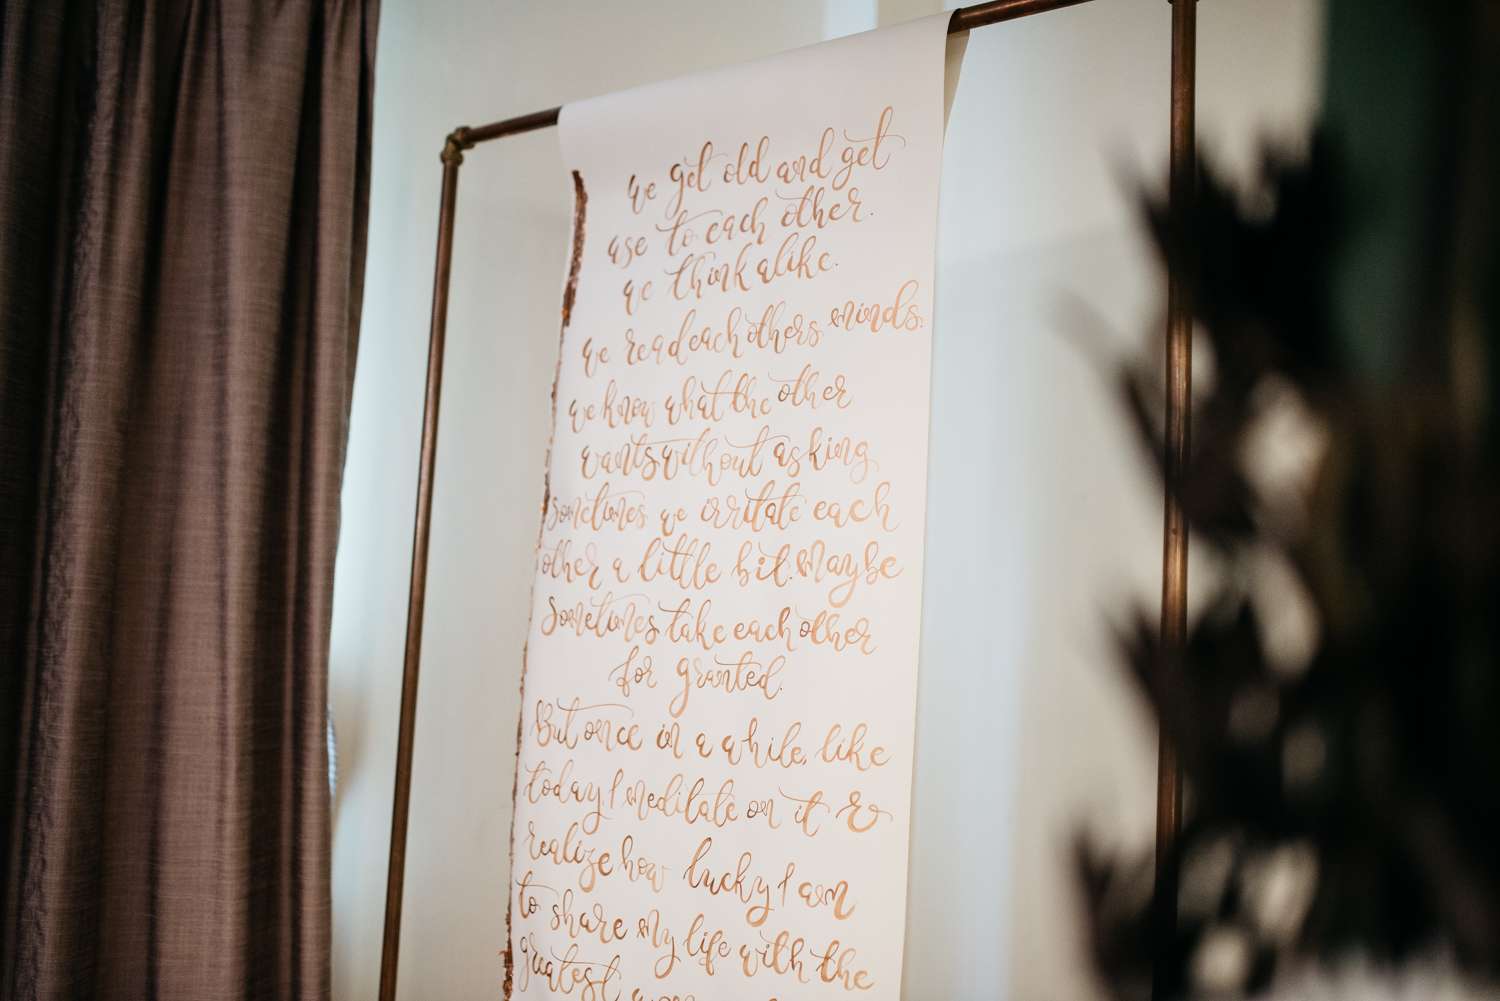 we get old and get
use to each other.
we think alike.
we read each others minds.
we know what the other
wants without asking
sometimes we irritate each
other a little bit. Maybe
sometimes take each other
for granted.
But once in a while, like
today, I meditate on it &
realize how lucky I am
to share my life with the
greatest